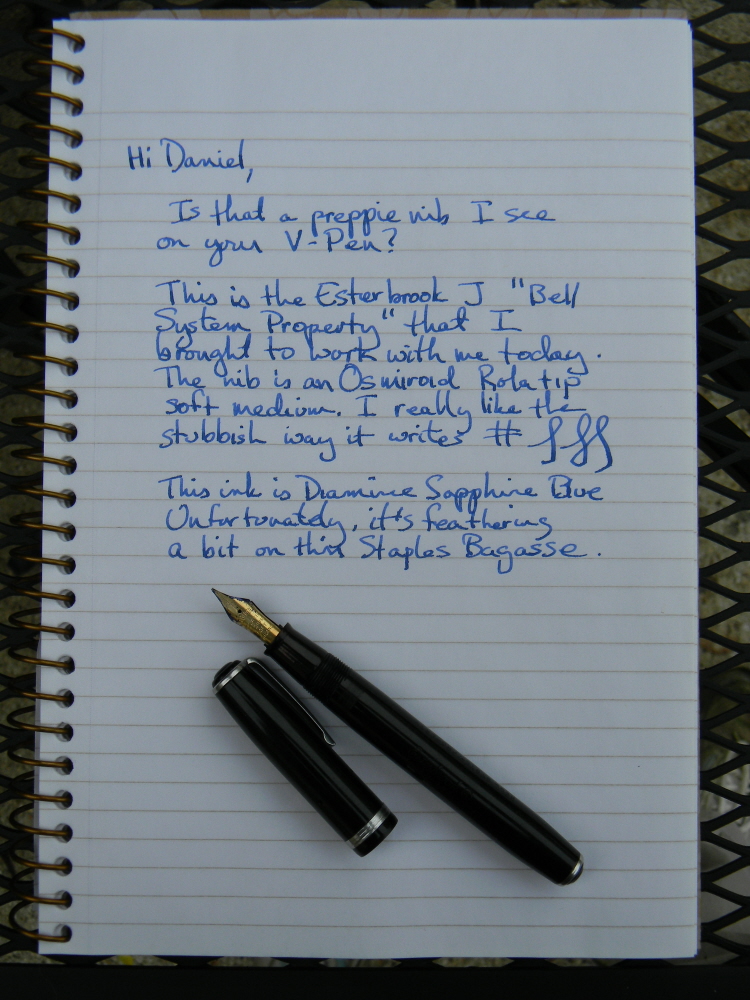 Hi Daniel,
Is that a preppie nib I see
on your V-Pen?
This is the Esterbrook J "Bell
System Property" that I
brought to work with me today.
The nib is an Osmiroid Rolatip
soft medium. I really like the
stubbish way it writes # ʃʃʃ
This ink is Diamine Sapphire Blue
Unfortunately, it's feathering
a bit on this Staples Bagasse.